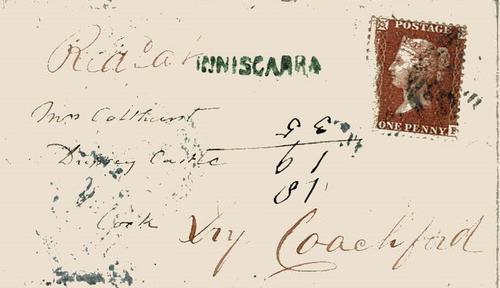 INNISCARRA
POSTAGE
ONE PENNY
Mrs Colthurst
Dripsey Castle
Cork
Try Coachford